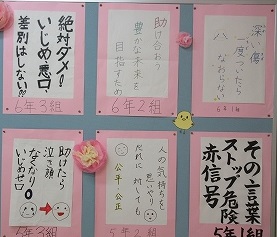 深い傷
一度ついたら
なおらない
6年1組
助け合おう
豊かな未来を
目指すため
6年2組
絶対ダメ!
いじめ悪口
差別はしない!!
6年3組
その言葉
ストップ危険
赤信号
5年1組
人の気持ちを
思いやり
だれに対しても
公平・公正
5年2組
助けたら
泣き顔
なくなり
いじめゼロ
5年3組